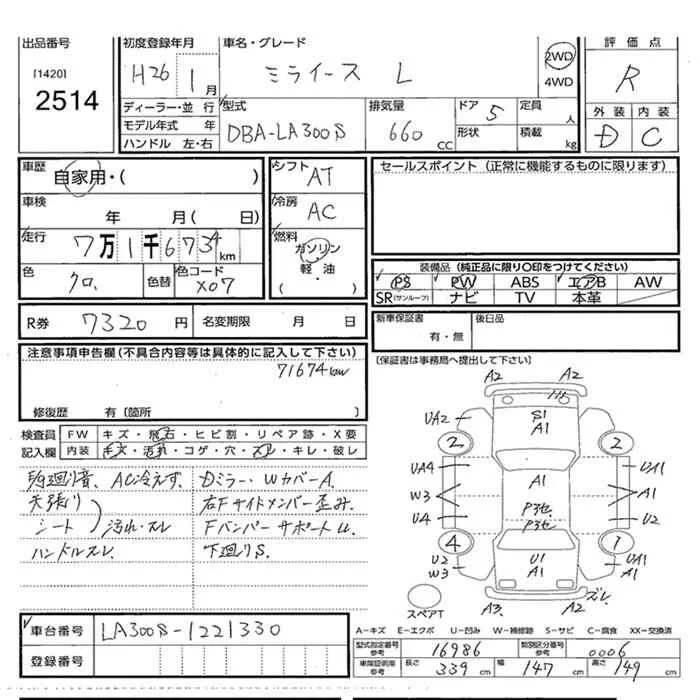 出品番号 初度登録年月 車名・グレード 評価点
[1420]
2514
H26 1月 ミライース L 2WD R
4WD
ディーラー・並行 型式 排気量 ドア 5 定員 人 外装 内装
モデル年式 年 DBA-LA300S 660 CC 形状 積載 kg D C
ハンドル 左・右
車歴 自家用・( )
シフト AT
セールスポイント (正常に機能するものに限ります)
車検 年 月( 日)
冷房 AC
走行 7万1千6734km
燃料 ガソリン・軽・油 ( )
装備品 (純正品に限り〇印をつけてください)
色 クロ 色替 色コード X07
PS PW ABS エアB AW
SR(サンルーフ) ナビ TV 本革
R券 7320円 名変期限 月 日
新車保証書 有・無 後日品
注意事項申告欄(不具合内容等は具体的に記入して下さい)
71674km
(保証書は事務局へ提出して下さい)
修復歴 有(箇所 )
検査員 FW キズ・飛石・ヒビ割・リペア跡・X要
記入欄 内装 キズ・汚れ・コゲ・穴・スレ・キレ・破レ
AC冷えず Dミラー・WカバーA.
天張り 右Fサイドメンバー歪み
シート 汚れ・スレ FバンパーサポートU
ハンドルスレ 下廻りS.
A2 A2
UA2 S1 A1
2 2
UA4 A1 UA1
W3 A1
U4 P3セ P3セ U2
4 1
U2 U1 UA1
W3 A1 A1
A3. A2 ズレ
スペアT
車台番号 LA300S-1221330
登録番号
A−キズ E−エクボ U−凹み W−補修跡 S−サビ C−腐食 XX−交換済
型式指定番号 参考 16986 類別区分番号 参考 0006
車庫証明用 参考 長さ 339 cm 幅 147 cm 高さ 149 cm